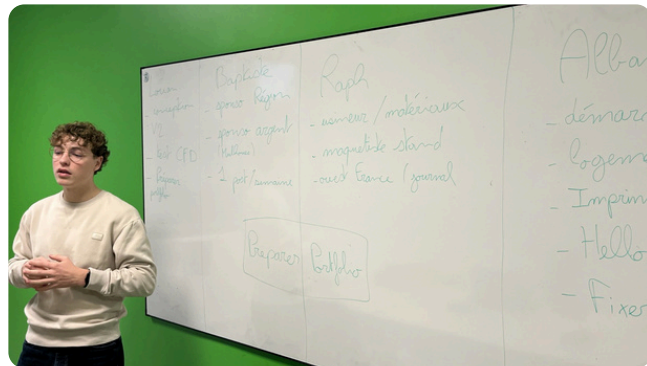 Louan
- conception
V2
- test CFD
- Préparer
portfolio
Baptiste
- sponso Région
- sponso argent
- 1 post/semaine
Raph
- usineur/matériaux
- maquettiste stand
- ouest France/journal
Préparer Portfolio
Alba
- démarc
- logeme
- Imprim
- Hello
- Fixer